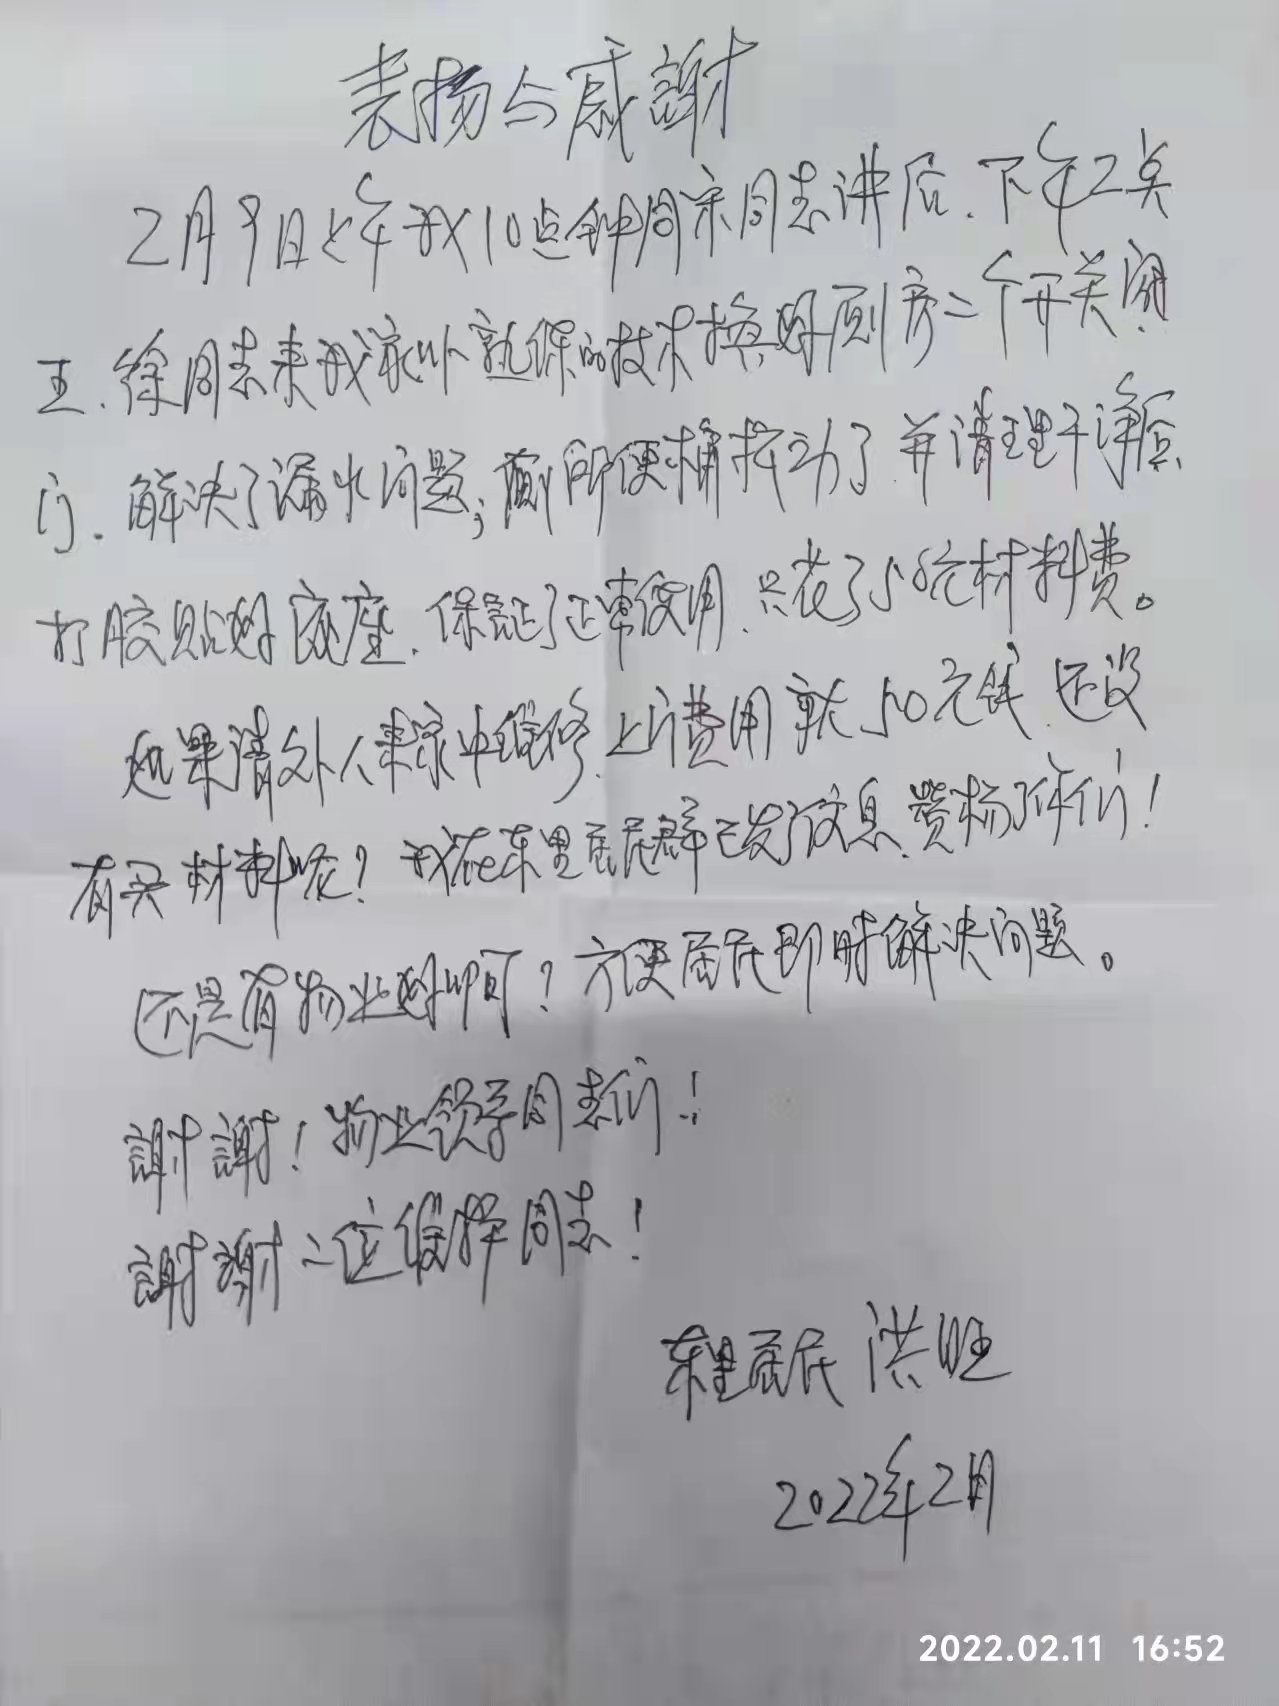 表扬与感謝
2月9日上午我10点钟同宋同志讲后.下午2点
王.徐同志来我家以熟练的技术换好厨房二个开关阀
门.解决了漏水问题;厕所便桶松动了.并清理干净后
打胶贴好底座.保証了正常使用.只花了50元材料费。
如果请外人来家中维修.上门费用就50元钱.还没
有买材料呢?我在东里居民群已发了信息.赞扬了你们!
还是有物业好呵?方便居民即时解决问题。
謝謝!物业领导同志们!
謝謝二位维修同志!
东里居民 洪旺
2022年2月
2022.02.11 16:52